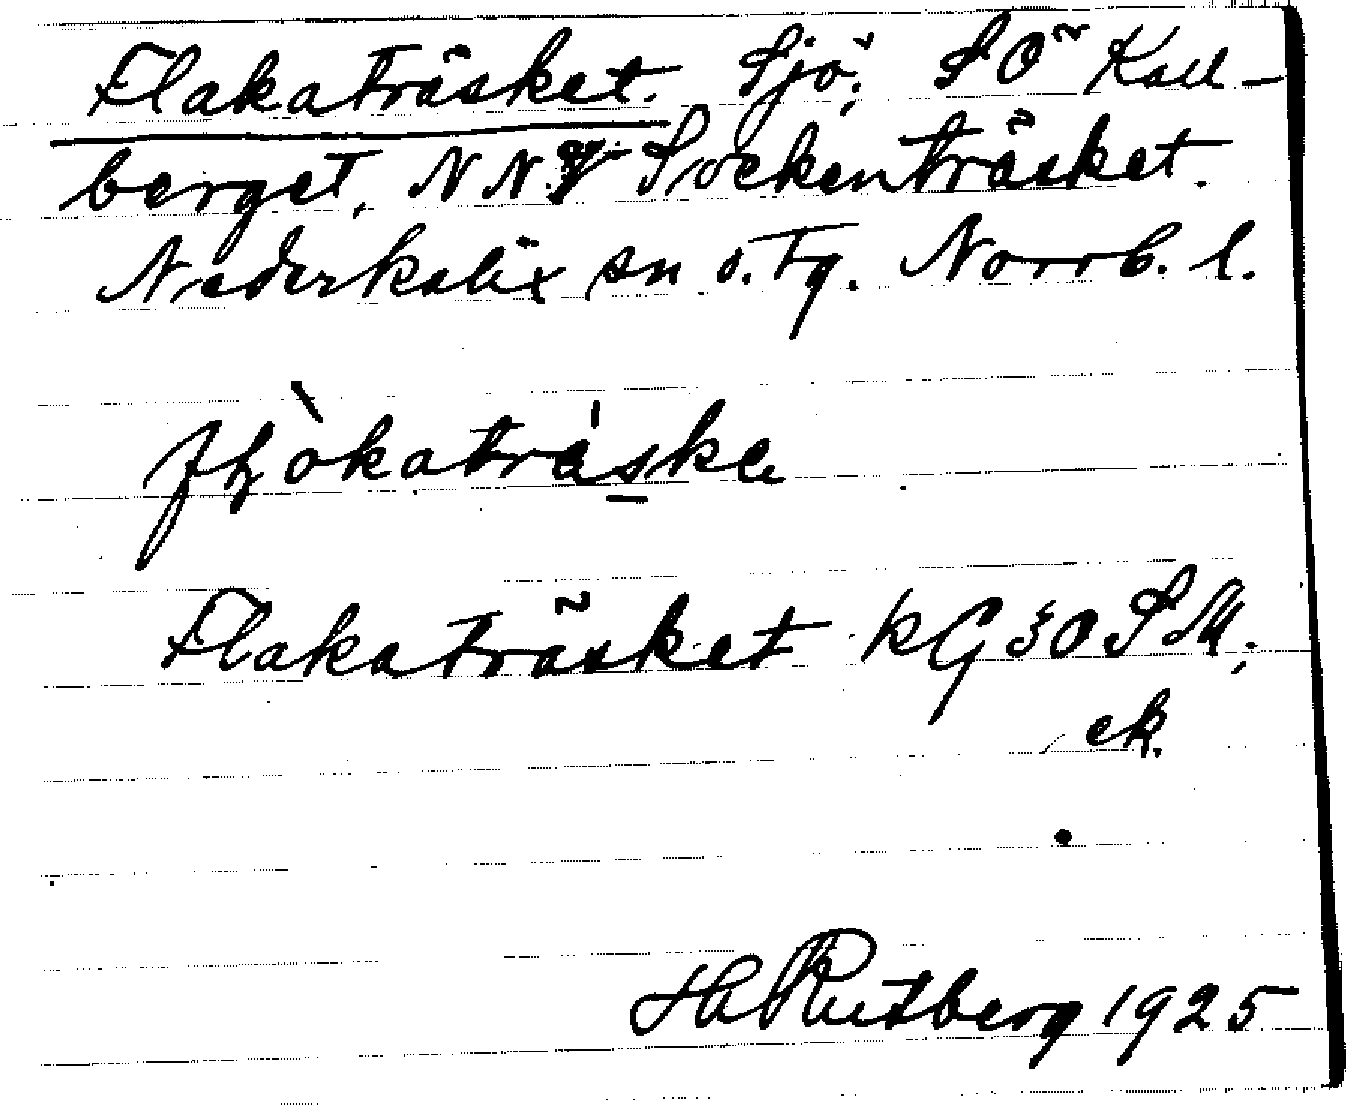 Flakaträsket. Sjö; SÖ Kall-
berget, NNV Sockenträsket.
Nederkalix sn o. tg. Norrb. l.
Flakaträsket kG 30 SM;
ek.
H Rutberg 1925